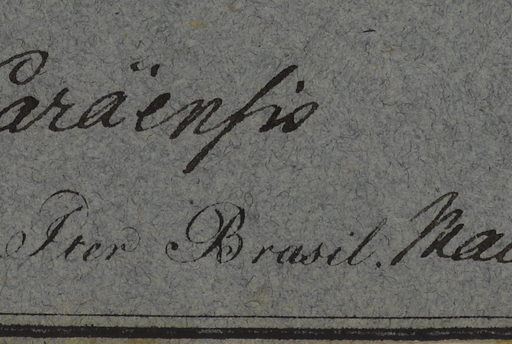 Paräensis
Iter Brasil. Mar